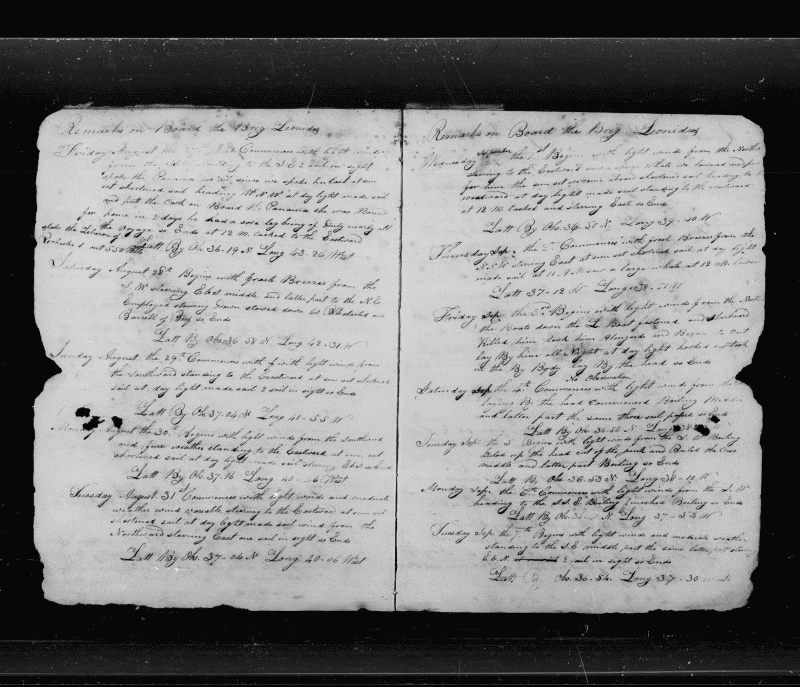 Remarks on Board the Brig Leonidas
Friday August the 27th Commences with light winds
from the standing to the S E 2 sail in sight
spoke the Panama we since we spoke her last at sun
set shortened sail heading W N W at day light made sail
and put the Cook on Board the Panama she was Bound
for home in 2 days he had a sore leg being of Duty nearly all
the Voyage so Ends at 12 M tacked to the Eastward
spoke the of
Rochester 1 out 550 bbls Latt By Ob 36-19 N Long 43-26 West
Saturday August 28th Begins with fresh Breezes from the
S W steering E b S middle and latter part to the N E
Employed stowing Down stowed down 60 Bbls started one
Barrell of Beef so Ends
Latt By Ob 36-51 N Long 42-31 W
Sunday August the 29th Commences with light winds from
the Southward standing to the Eastward at sun set shortened
sail at day light made sail 2 sail in sight so Ends
Latt By Ob 37-04 N Long 41-55 W
Monday August the 30th Begins with light winds from the Southward
and fine weather standing to the Eastward at sun set
shortened sail at day light made sail steering E b S so Ends
Latt By Ob 37-16 Long 41-16 West
Tuesday August 31st Commences with light winds and moderate
weather wind variable steering to the Eastward at sun set
shortened sail at day light made sail wind from the
Northward steering East one sail in sight so Ends
Latt By Ob 37-04 N Long 40-06 West
Remarks on Board the Brig Leonidas
Wednesday September the 1st Begins with light winds from the North
steering to the Eastward saw a large whale we lowered
for him the sun set shortened sail heading to
westward at day light made sail standing to the eastward
at 12 M tacked and steering East so Ends
Latt By Ob 36-57 N Long 39-40 W
Thursday Sep the 2nd Commences with fresh Breezes from the
N N W steering East at sun set shortened sail at day light
made sail at 11 A M saw a large whale at 12 M
Latt 37-12 N Long 38-
Friday Sep the 3rd Begins with light winds from the North
the Boats down the L Boat fastened and
Killed him took him Alongside and Began to cut
lay By him all Night at day light hooked on took
in the By Body lay By the head so Ends
No Observation
Saturday Sep the 4th Commences with light winds from the
laying By the head Commenced Boiling Middle
and latter part the same three sail so Ends
Latt By Ob 36-56 N Long
Sunday Sep the 5 Begins with light winds from the S W Boiling
Bailed up the head out of the junk and Bailed the Case
middle and latter part Boiling so Ends
Latt By Ob 36-53 N Long 38-10 W
Monday Sep the 6th Commences with light winds from the S W
heading to the S & E Boiling finished Boiling so Ends
Latt By Ob 36- N Long 37-52 W
Tuesday Sep the 7th Begins with light winds and moderate weather
standing to the S E middle part the same latter part steering
E b N 2 sail in sight so Ends
Latt By Ob 36-54 Long 37-30 West